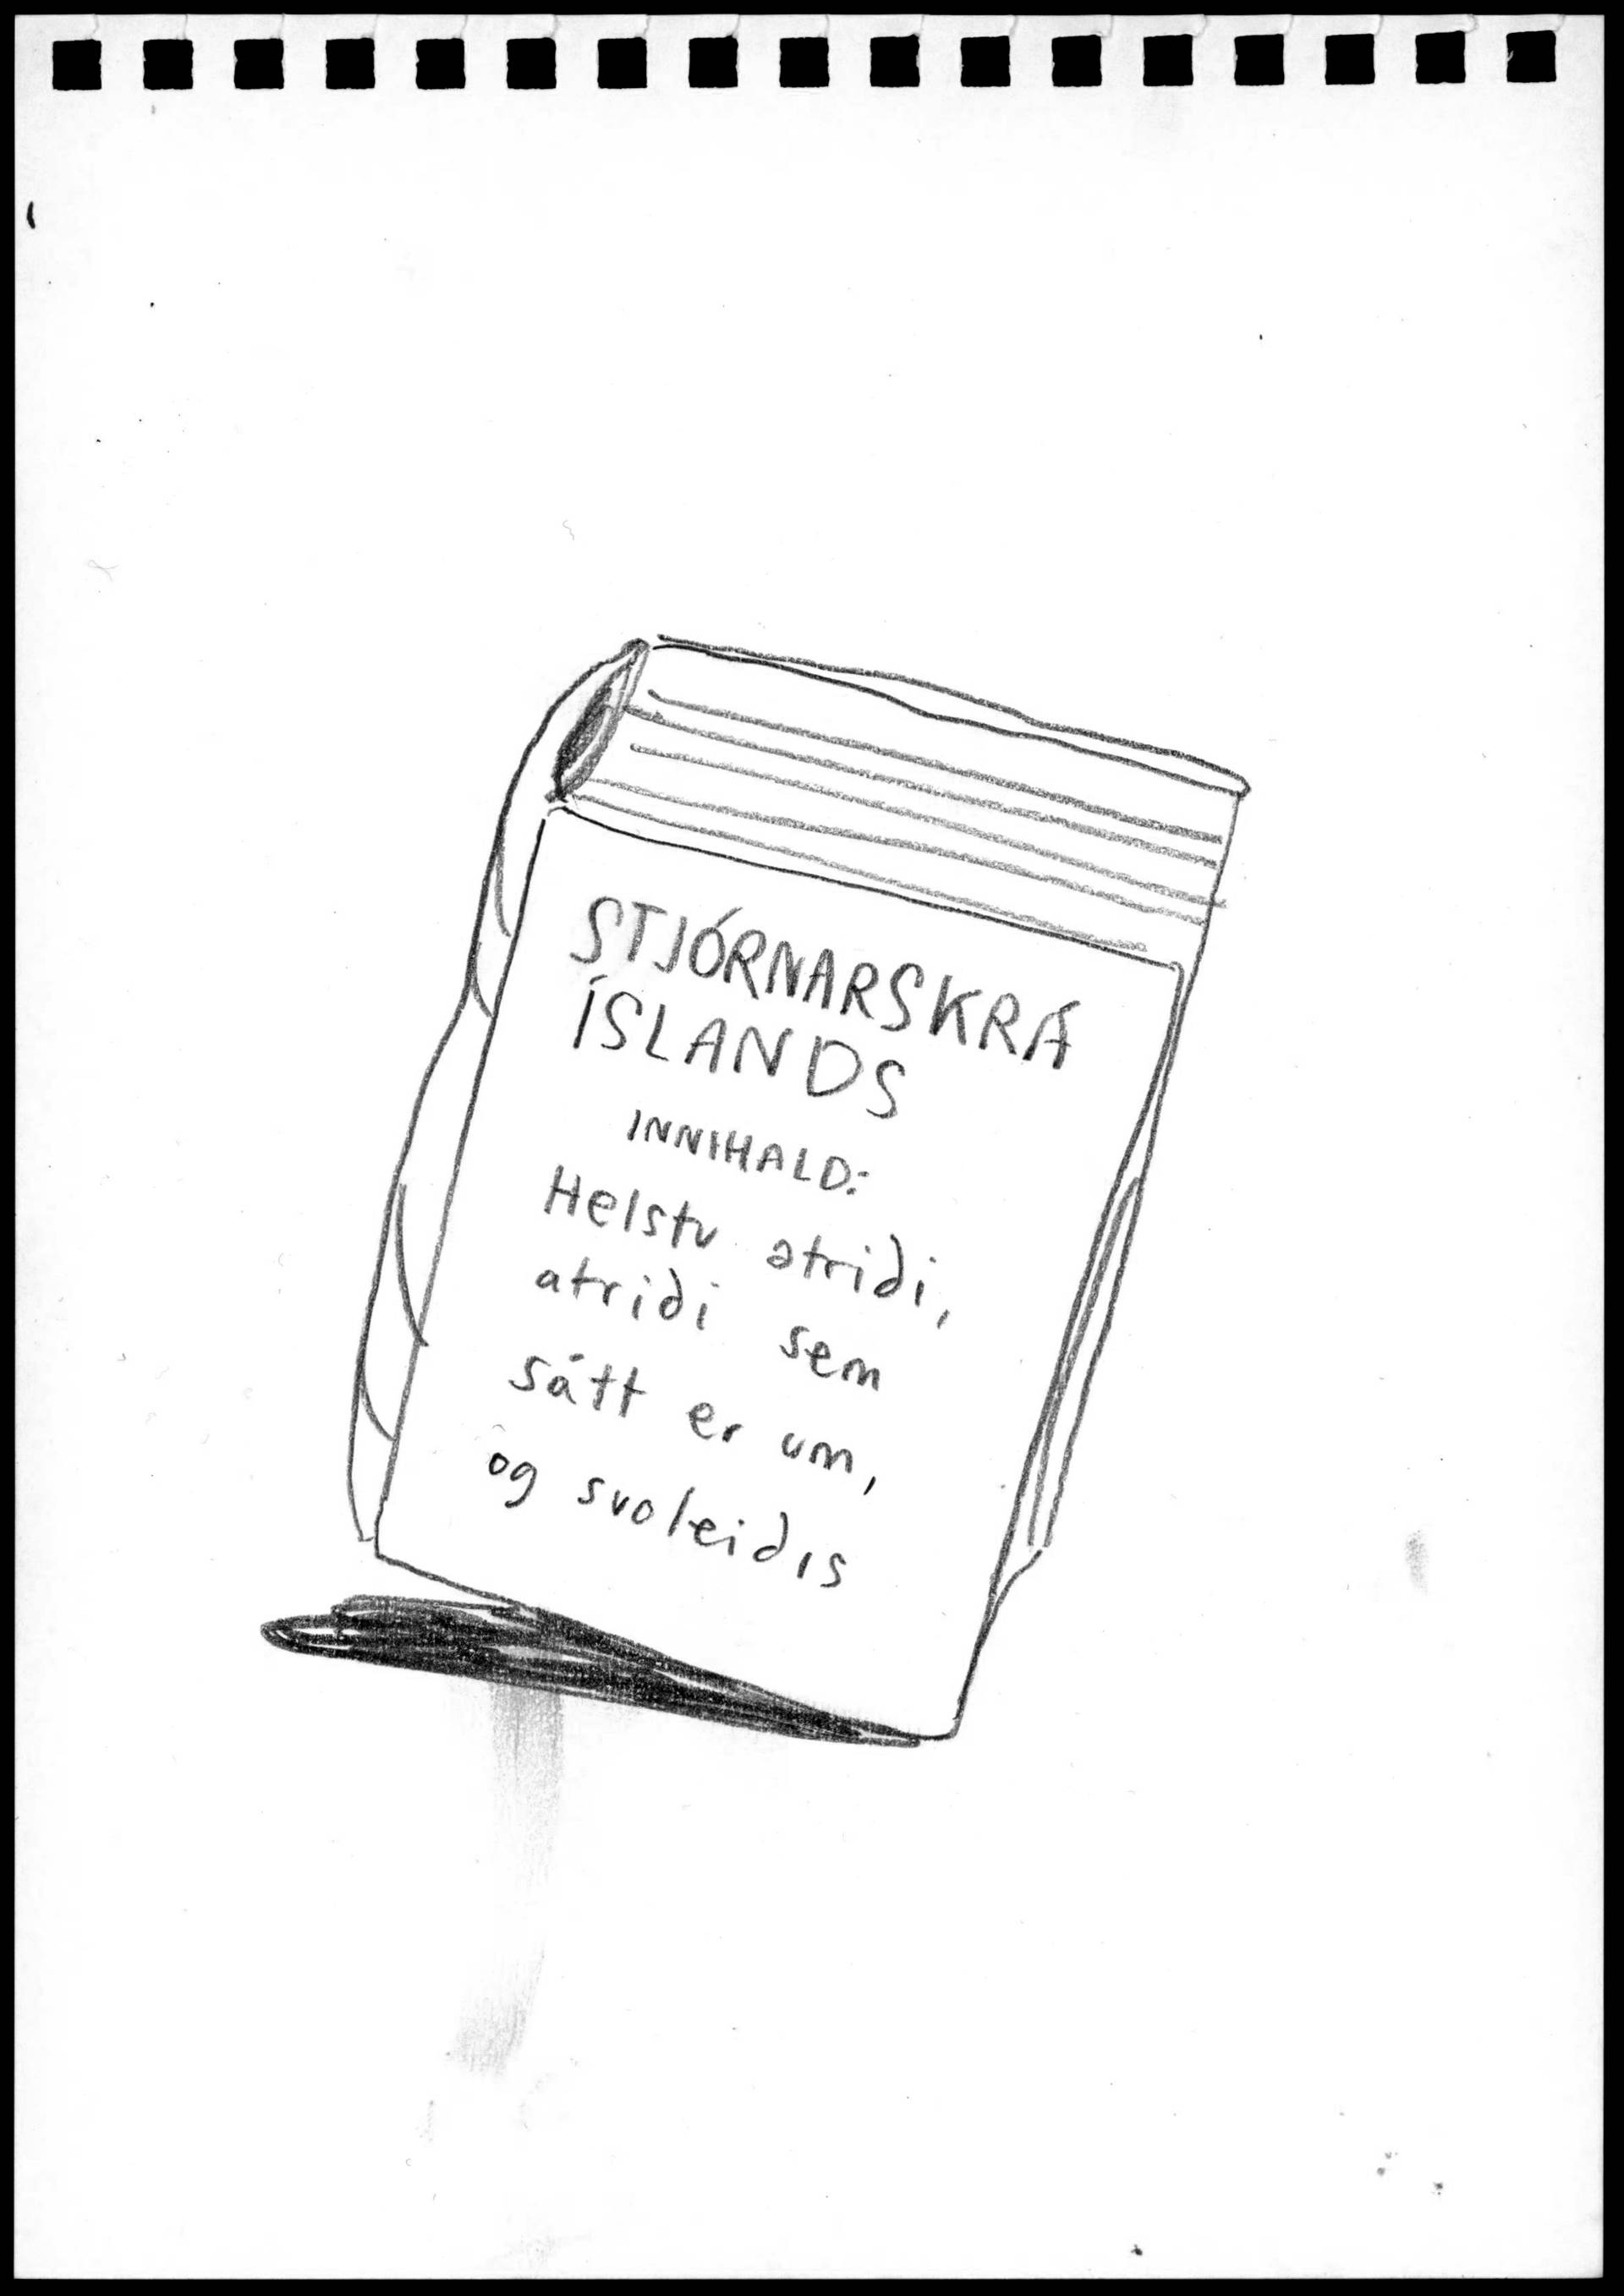 STJÓRNARSKRÁ
ÍSLANDS
INNIHALD:
Helstu atriði,
atriði sem
sátt er um,
og svoleiðis